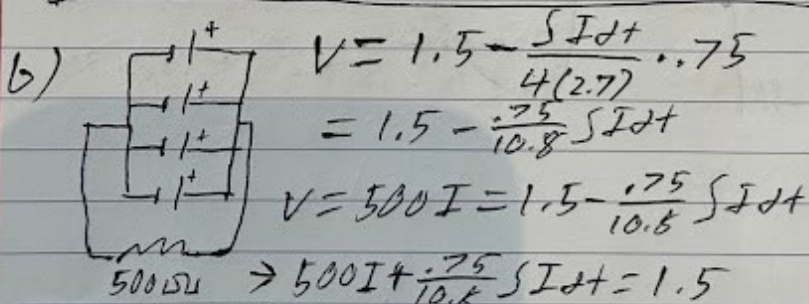 b)
+
+
+
+
500Ω
V = 1.5 - ∫Idt/4(2.7) · .75
= 1.5 - .75/10.8 ∫Idt
V = 500I = 1.5 - .75/10.8 ∫Idt
→ 500I + .75/10.8 ∫Idt = 1.5